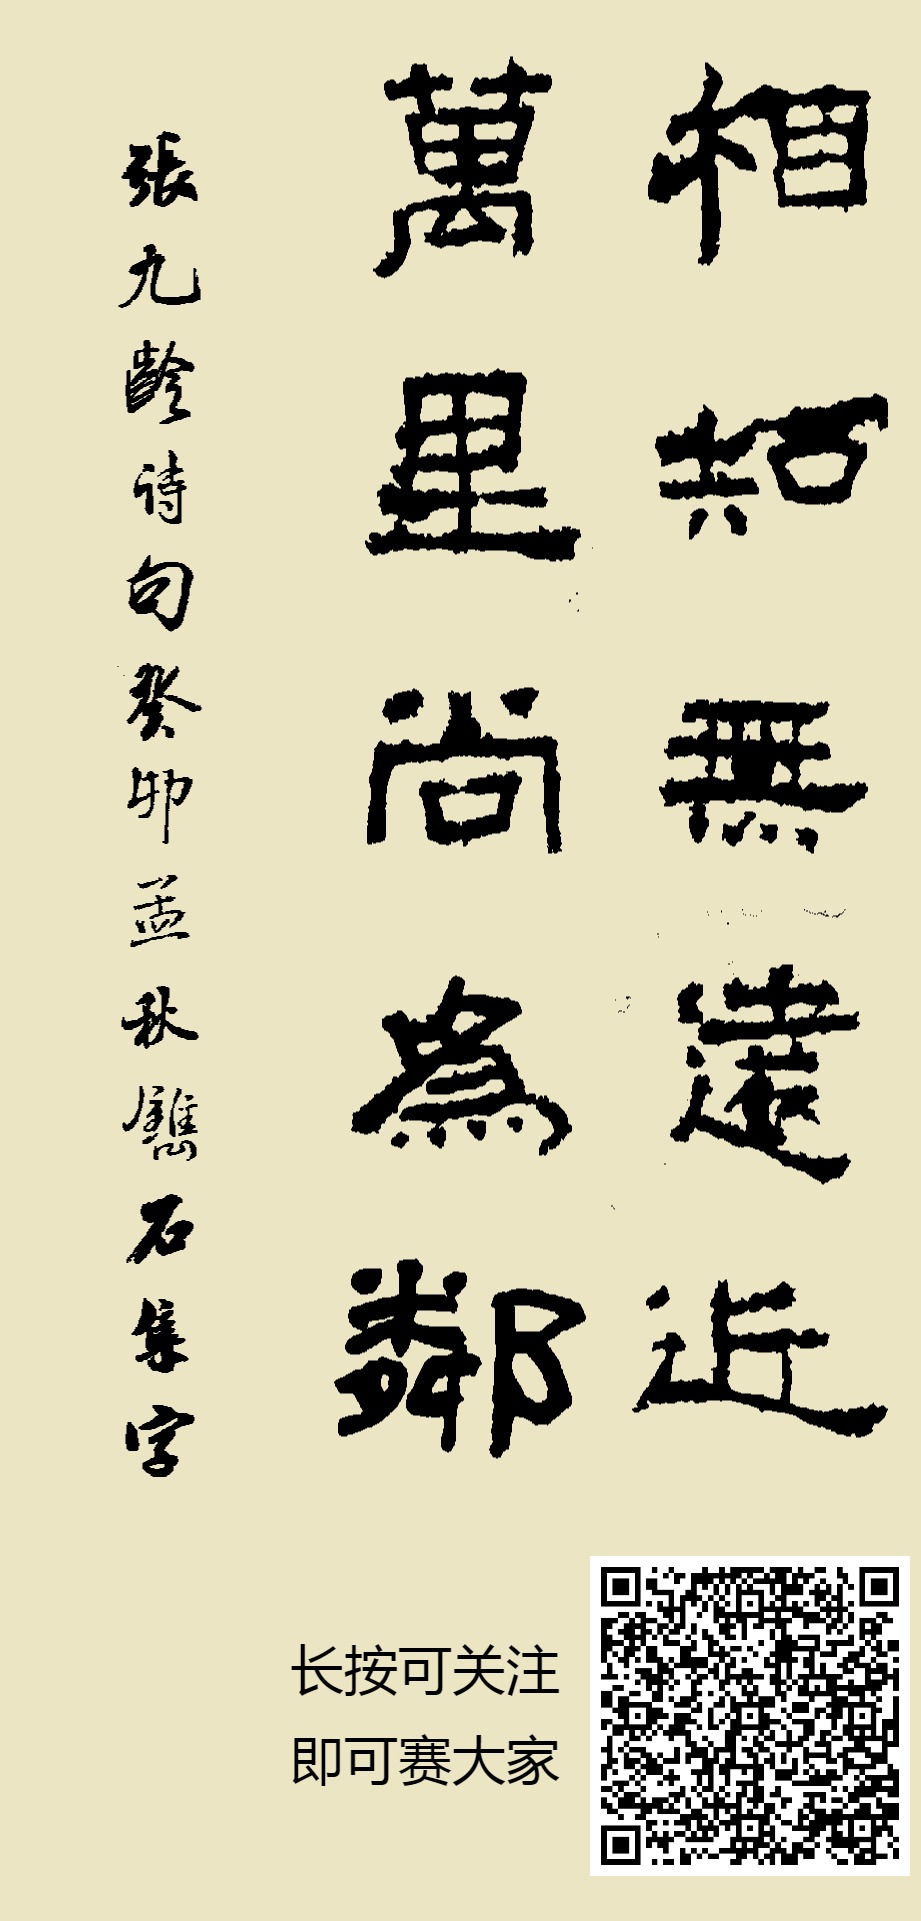 相知無遠近
萬里尚為鄰
張九齡诗句癸卯孟秋鐫石集字
长按可关注
即可赛大家